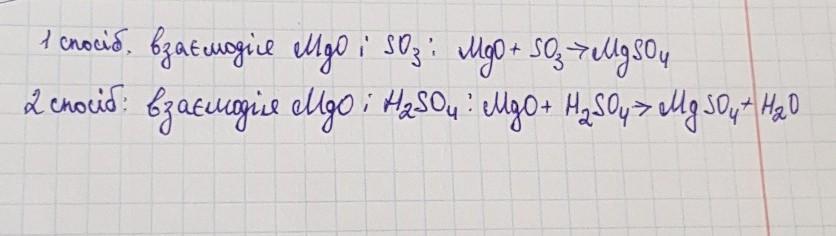 1 спосіб. взаємодія MgO і SO₃: MgO + SO₃ → MgSO₄
2 спосіб: взаємодія MgO і H₂SO₄: MgO + H₂SO₄ → MgSO₄ + H₂O